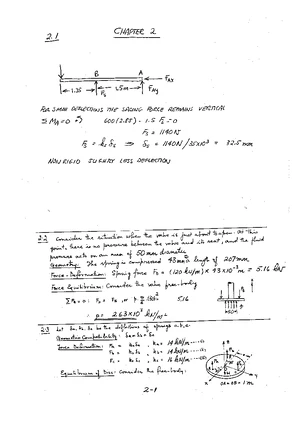 2.1
CHAPTER 2
B
A
F_AX
1.35
F_S
1.5m
F_AY
FOR SMALL DEFLECTIONS THE SPRING FORCE REMAINS VERTICAL
ΣM_A=0 600(2.85) - 1.5 F_S = 0
F_S = 1140N
F_S = k_s δ_s ⇒ δ_s = 1140N/35x10³ = 32.5 mm
NON RIGID SLIGHTLY LESS DEFLECTION
2.2 Consider the situation when the valve is just about to open. At this
point, there is no pressure between the valve and its seat, and the fluid
pressure acts on an area of 50mm diameter
Geometry: The spring is compressed 43mm length of 207mm
Force-Deformation: Spring force F_s = (120 kN/m) × 43×10⁻³ m = 5.16 kN
Force Equilibrium: Consider the valve free-body
5.16
p = 2.63×10³ kN/m²
2.3 Let δa, δb, δc be the deflections of springs a, b, c.
Geometric Compatibility: δa = δb = δc
Force Deformation:
Equilibrium of Disc: Consider the free-body:
2-1